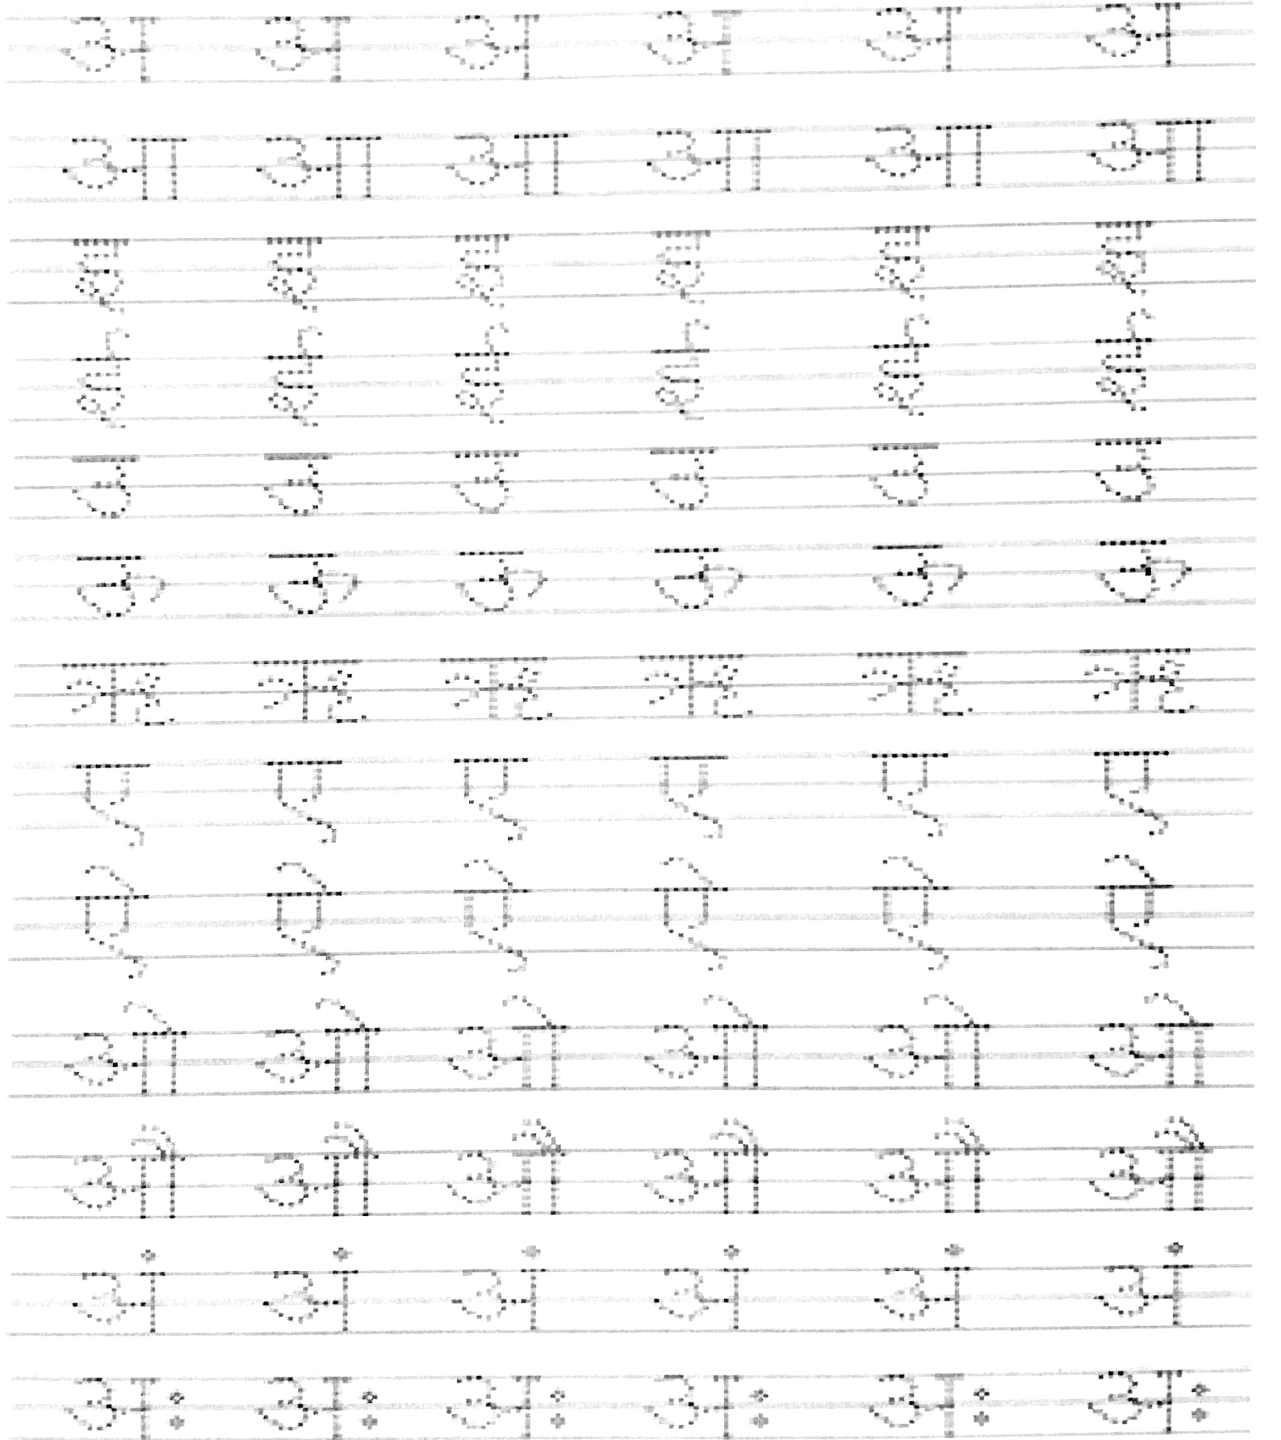 अ अ अ अ अ अ
आ आ आ आ आ आ
इ इ इ इ इ इ
ई ई ई ई ई ई
उ उ उ उ उ उ
ऊ ऊ ऊ ऊ ऊ ऊ
ऋ ऋ ऋ ऋ ऋ ऋ
ए ए ए ए ए ए
ऐ ऐ ऐ ऐ ऐ ऐ
ओ ओ ओ ओ ओ ओ
औ औ औ औ औ औ
अं अं अं अं अं अं
अः अः अः अः अः अः